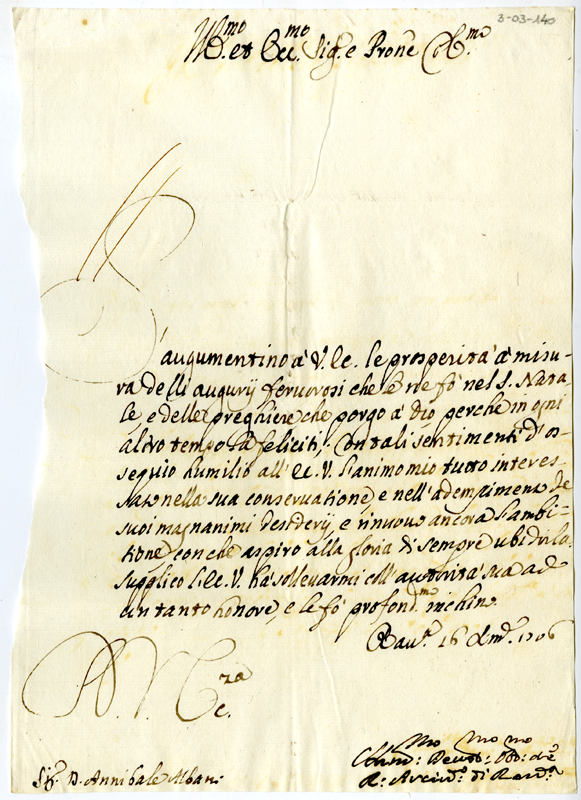 3-03-140
Ill.mo et Ecc.mo Sig.e e Prone Col.mo
S'augumentino à V. Ec. le prosperità à misu-
ra delli augurij feruorosi che le ne fò nel S. Nata-
le, e delle preghiere che porgo à dio perche in ogni
altro tempo la feliciti, Con tali sentimenti d'os-
sequio humilio all' Ec. V. l'animo mio tutto interes-
sato nella sua conseruatione, e nell'adempimento de
suoi magnanimi desiderij, e rinuouo ancora l'ambi-
tione, con che aspiro alla gloria di sempre ubidirla.
supplico l'Ec. V. hà solleuarmi coll'autorità sua ad
un tanto honore, e le fò profond.mo inchino.
Rau.a 16 Xmbre 1706
D. V. Ecc.za
Sig. D. Annibale Albani
Deuot.mo Obb.mo